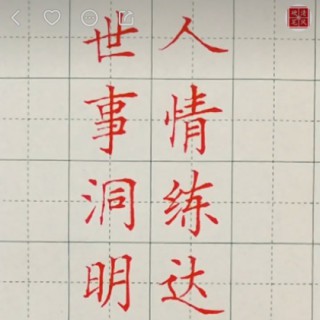 人情练达
世事洞明